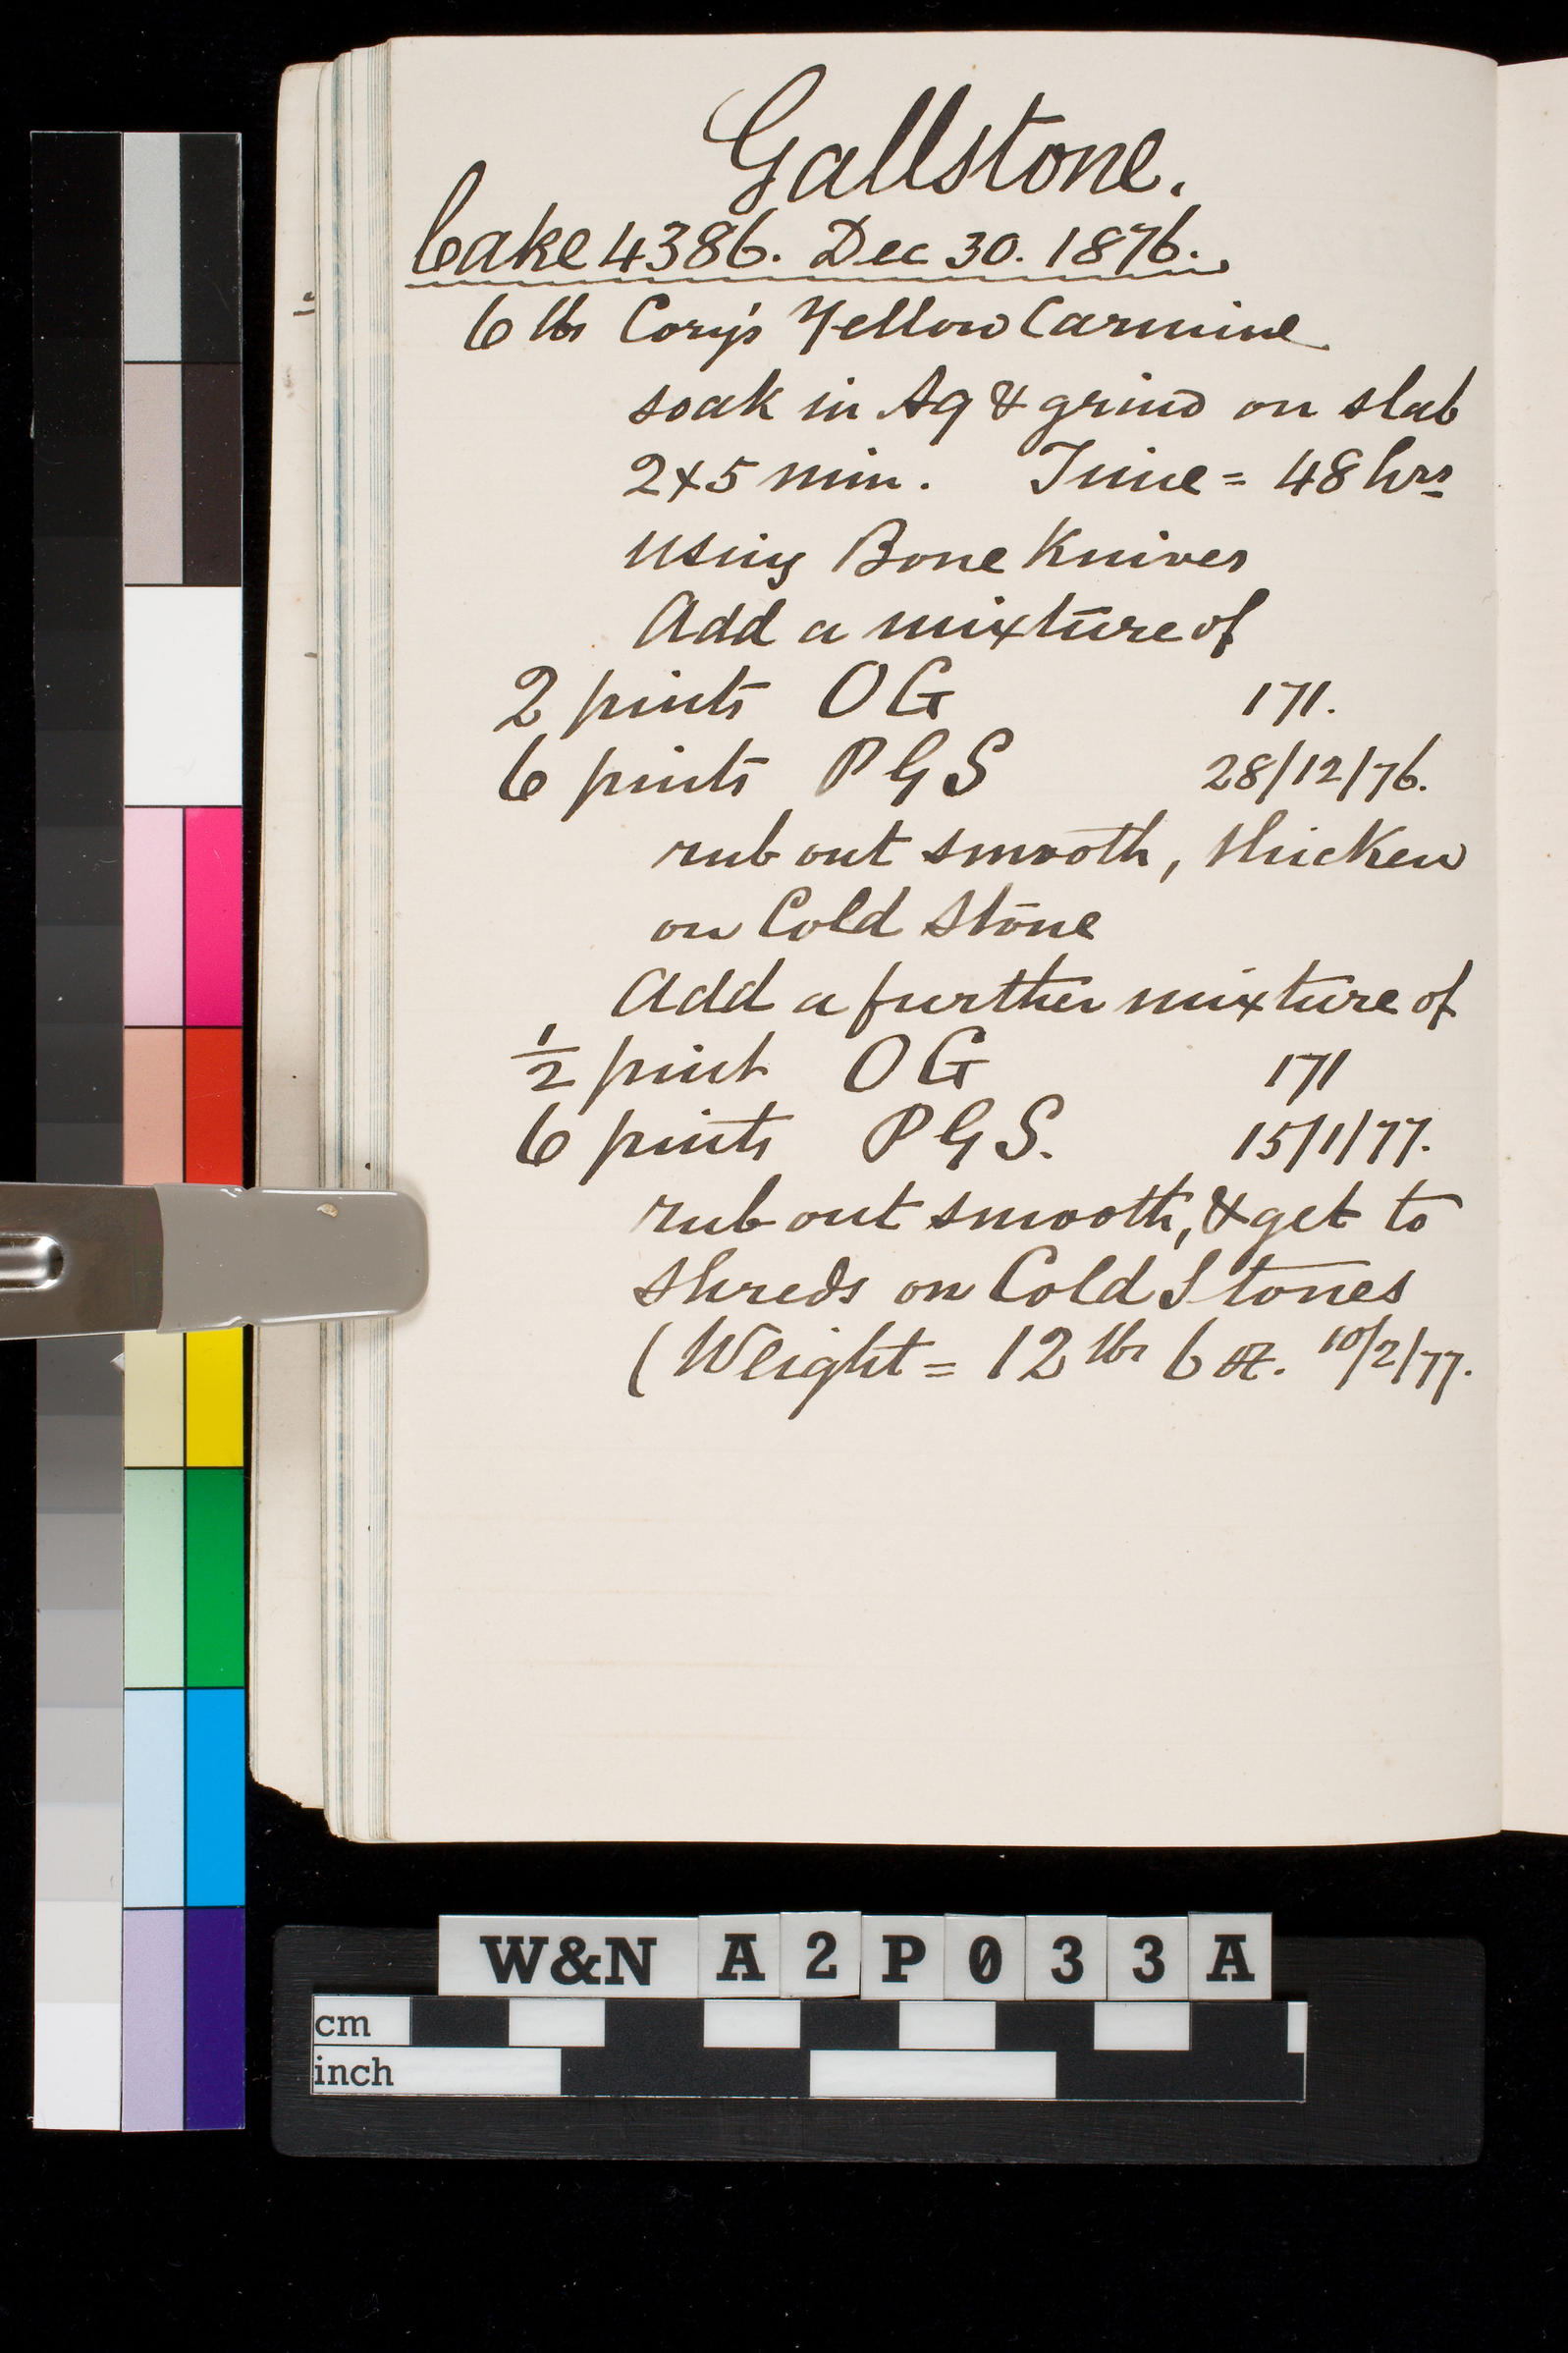 Gallstone.
Cake 4386. Dec 30. 1876.
6 lbs Cory's Yellow Carmine
soak in Aq & grind on slab
2x5 min. Time = 48 hrs
using Bone Knives
Add a mixture of
2 pints OG 171.
6 pints PGS 28/12/76.
rub out smooth, thicken
on Cold Stone
Add a further mixture of
1/2 pint OG 171
6 pints PGS. 15/1/77.
rub out smooth, & get to
shreds on Cold Stones
(Weight = 12 lbs 6 oz. 10/2/77.
W&N A2P033A
cm
inch